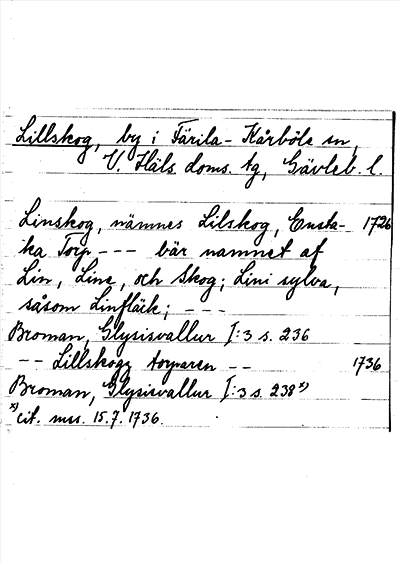 Lillskog, by i Färila-Kårböle sn,
V. Häls. doms. tg, Gävleb. l.
Linskog, nämnes Lilskog, Ensta- 1726
ka Torp --- bär namnet af
Lin, Line, och Skog; Lini sylva,
såsom Linfläck; ---
Broman, Glysisvallur I:3 s. 236
-- Lillskogz torparen -- 1736
Broman, Glysisvallur I:3 s. 238 x)
x) cit. mss. 15.7.1736.